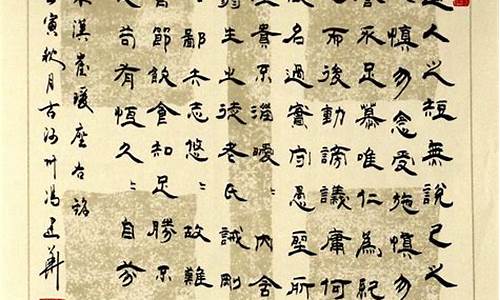 道人之短無說己之
慎勿念受施慎勿
不足慕唯仁為紀
而後動謗議庸何
名過實守愚聖所
貴不淄曖〻內含
弱生之徒老氏誡剛
〻鄙夫志悠〻故難
節飲食知足勝不
之苟有恆久〻自芬
漢崔瑗座右銘
寅秋月古沙州馮